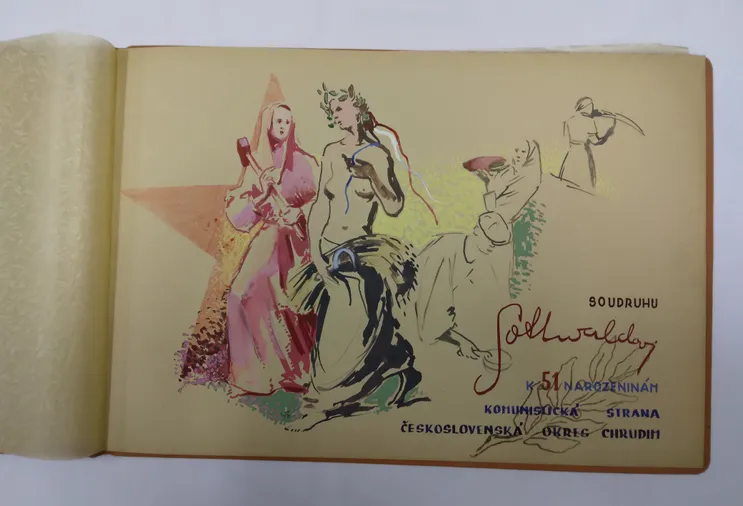 SOUDRUHU
Gottwaldovi
K 51 NAROZENINÁM
KOMUNISTICKÁ STRANA
ČESKOSLOVENSKÁ OKRES CHRUDIM